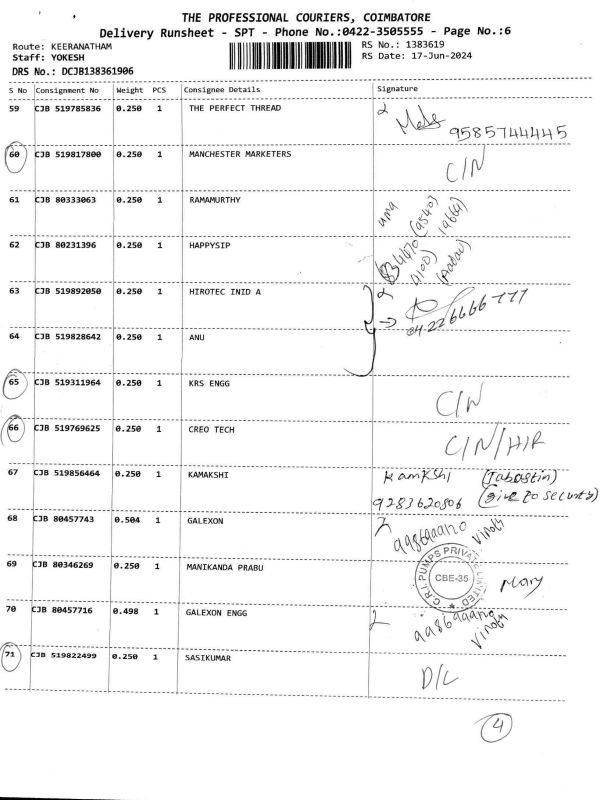 THE PROFESSIONAL COURIERS, COIMBATORE
Delivery Runsheet - SPT - Phone No.:0422-3505555 - Page No.:6
Route: KEERANATHAM RS No.: 1383619
Staff: YOKESH RS Date: 17-Jun-2024
DRS No.: DCJB138361906
S No Consignment No Weight PCS Consignee Details Signature
59 CJB 519785836 0.250 1 THE PERFECT THREAD
9585744445
60 CJB 519817800 0.250 1 MANCHESTER MARKETERS C/N
61 CJB 80333063 0.250 1 RAMAMURTHY uma
62 CJB 80231396 0.250 1 HAPPYSIP
63 CJB 519892050 0.250 1 HIROTEC INID A
04226666777
64 CJB 519828642 0.250 1 ANU
65 CJB 519311964 0.250 1 KRS ENGG C/N
66 CJB 519769625 0.250 1 CREO TECH C/N/HIR
67 CJB 519856464 0.250 1 KAMAKSHI Kamkshi (Jabastin)
9283620806 (Give to Security)
68 CJB 80457743 0.504 1 GALEXON Vinoth
69 CJB 80346269 0.250 1 MANIKANDA PRABU C.R.I. PUMPS PRIVATE LIMITED CBE-35 Mary
70 CJB 80457716 0.498 1 GALEXON ENGG Vinoth
71 CJB 519822499 0.250 1 SASIKUMAR D/L
4